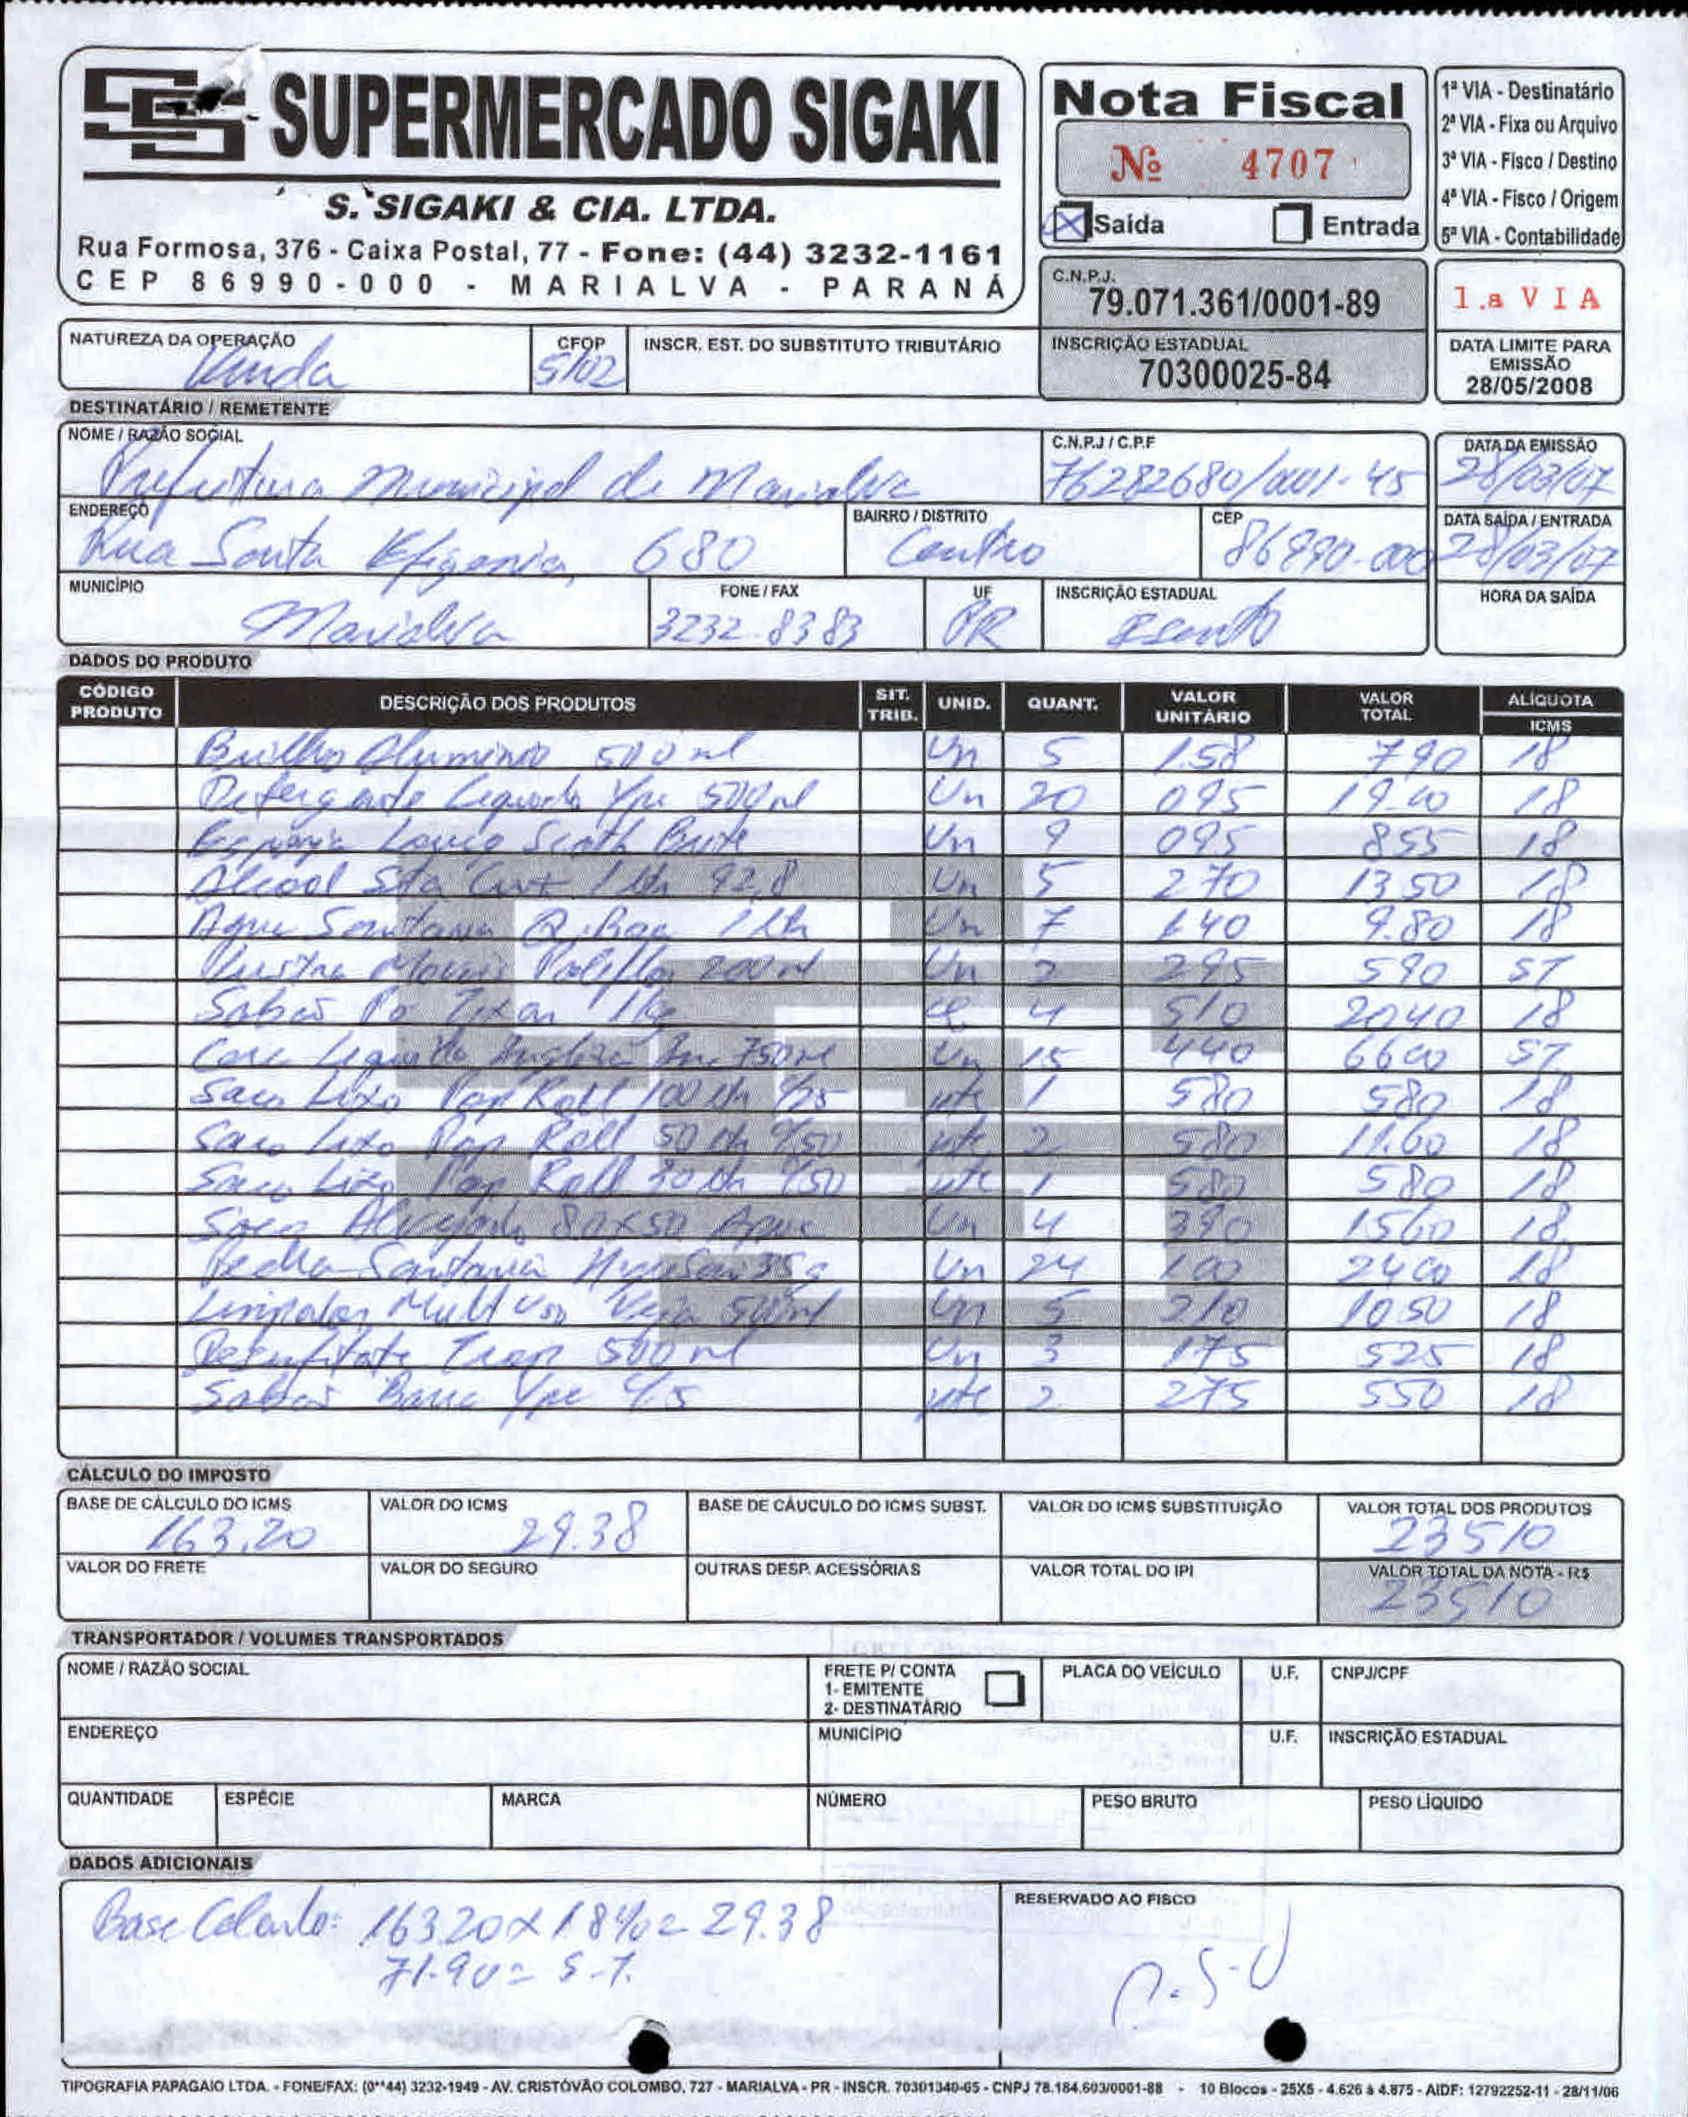 SUPERMERCADO SIGAKI
S. SIGAKI & CIA. LTDA.
Rua Formosa, 376 - Caixa Postal, 77 - Fone: (44) 3232-1161
CEP 86990-000 - MARIALVA - PARANÁ
Nota Fiscal
Nº 4707
Saída Entrada
1ª VIA - Destinatário
2ª VIA - Fixa ou Arquivo
3ª VIA - Fisco / Destino
4ª VIA - Fisco / Origem
5ª VIA - Contabilidade
C.N.P.J.
79.071.361/0001-89
1.a VIA
NATUREZA DA OPERAÇÃO CFOP INSCR. EST. DO SUBSTITUTO TRIBUTÁRIO
Venda 5102
INSCRIÇÃO ESTADUAL
70300025-84
DATA LIMITE PARA
EMISSÃO
28/05/2008
DESTINATÁRIO / REMETENTE
NOME / RAZÃO SOCIAL C.N.P.J / C.P.F DATA DA EMISSÃO
Prefeitura Municipal de Marialva 76282680/001-45 28/03/07
ENDEREÇO BAIRRO / DISTRITO CEP DATA SAÍDA / ENTRADA
Rua Santa Efigenia, 680 Centro 86990-000 28/03/07
MUNICÍPIO FONE / FAX UF INSCRIÇÃO ESTADUAL HORA DA SAÍDA
Marialva 3232-8383 PR Isento
DADOS DO PRODUTO
CÓDIGO PRODUTO DESCRIÇÃO DOS PRODUTOS SIT. TRIB. UNID. QUANT. VALOR UNITÁRIO VALOR TOTAL ALÍQUOTA ICMS
Brilho Aluminio 500 ml Un 5 1.58 790 18
Detergente Liquido Ype 500 ml Un 20 095 19.00 18
Esponja Louça Scoth Brite Un 9 095 855 18
Alcool Sta Cruz 1 Ltr 92,8 Un 5 270 1350 18
Agua Sanitaria Q.Boa 1 Ltr Un 7 140 9.80 18
Lustra Moveis Poliflor 200 ml Un 2 295 590 ST
Sabão Po Tixan 1 kg 4 510 2040 18
Cera Liquida Inglesa 750 ml Un 15 440 6600 ST
Saco Lixo Pop Roll 100 Ltr c/25 pte 1 580 580 18
Saco Lixo Pop Roll 50 Ltr c/50 pte 2 580 11.60 18
Saco Lixo Pop Roll 30 Ltr c/50 pte 1 580 580 18
Saco Alvejado 80x50 Un 4 390 1560 18
Pedra Sanitaria 35 g Un 24 100 2400 18
Limpador Mult Uso Veja 500 ml Un 5 210 1050 18
500 ml Un 3 175 525 18
Sabão Barra Ype c/5 pte 2 275 550 18
CÁLCULO DO IMPOSTO
BASE DE CÁLCULO DO ICMS VALOR DO ICMS BASE DE CÁUCULO DO ICMS SUBST. VALOR DO ICMS SUBSTITUIÇÃO VALOR TOTAL DOS PRODUTOS
163.20 29.38 23510
VALOR DO FRETE VALOR DO SEGURO OUTRAS DESP. ACESSÓRIAS VALOR TOTAL DO IPI VALOR TOTAL DA NOTA - R$
23510
TRANSPORTADOR / VOLUMES TRANSPORTADOS
NOME / RAZÃO SOCIAL FRETE P/ CONTA PLACA DO VEÍCULO U.F. CNPJ/CPF
1- EMITENTE
2- DESTINATÁRIO
ENDEREÇO MUNICÍPIO U.F. INSCRIÇÃO ESTADUAL
QUANTIDADE ESPÉCIE MARCA NÚMERO PESO BRUTO PESO LÍQUIDO
DADOS ADICIONAIS
RESERVADO AO FISCO
Base Calculo: 163.20 x 18% = 29.38
71.90 = S-T.
TIPOGRAFIA PAPAGAIO LTDA. - FONE/FAX: (0**44) 3232-1949 - AV. CRISTÓVÃO COLOMBO, 727 - MARIALVA - PR - INSCR. 70301340-65 - CNPJ 78.184.603/0001-88 - 10 Blocos - 25X5 - 4.626 à 4.875 - AIDF: 12792252-11 - 28/11/06